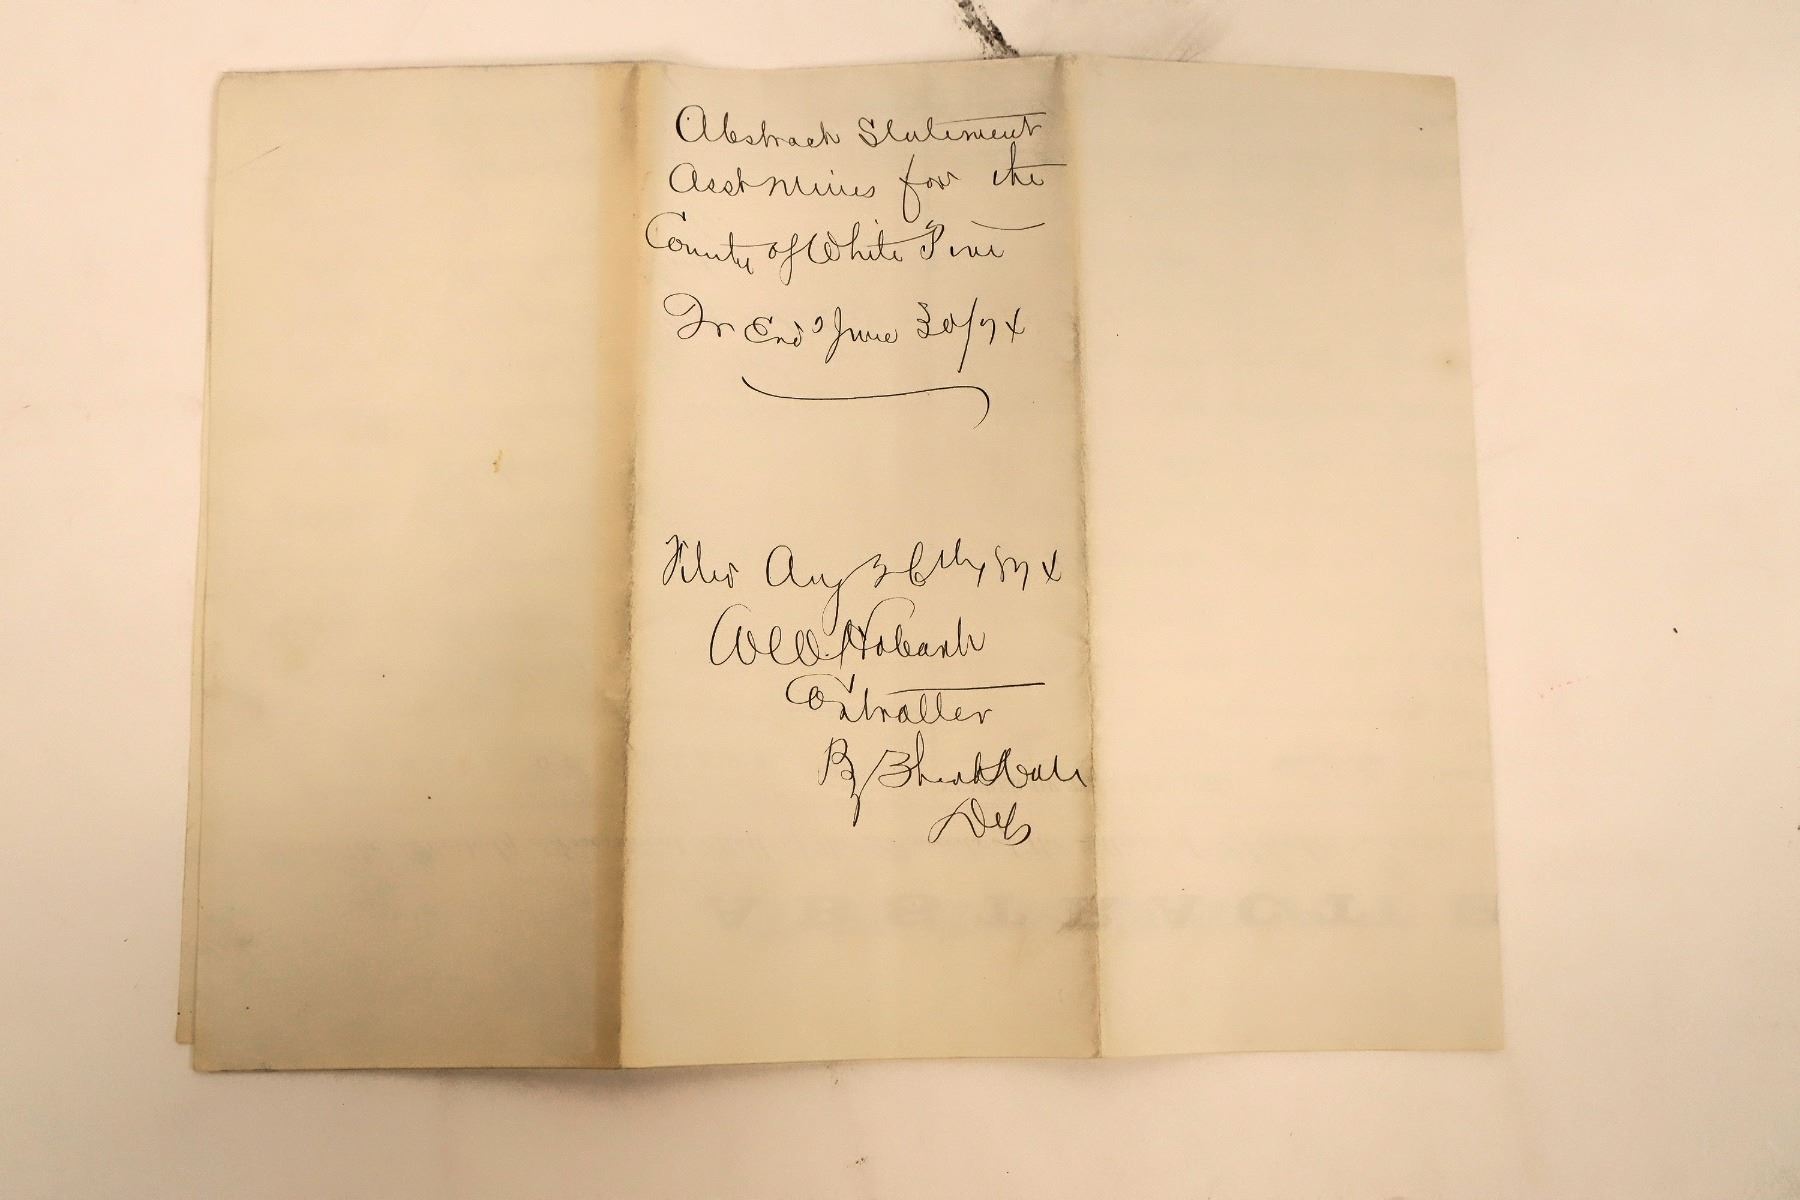 Abstract Statement
Asst Mines for the
County of White Pine
Qr End'g June 30/74
Filed Aug 26th, 1874
W W Hobart
Controller
By
Dep
ABSTRACT